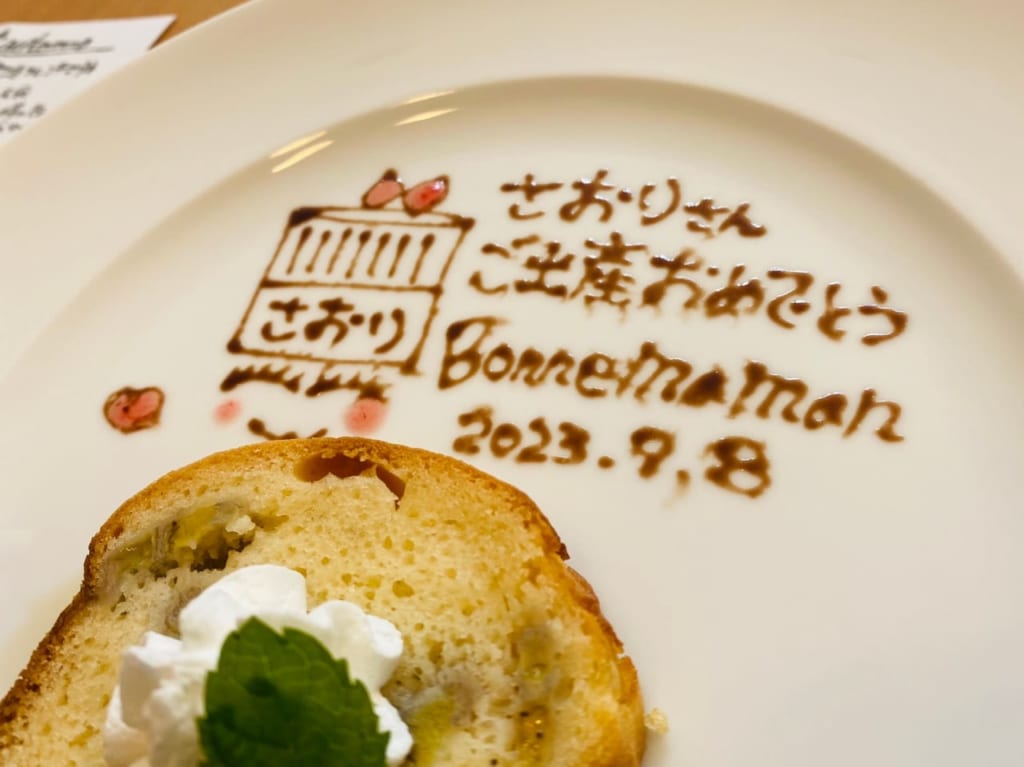 さおりさん
ご出産おめでとう
さおり
Bonnemaman
2023.9.8